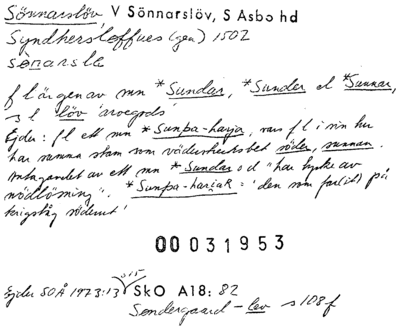 Sönnarslöv V Sönnarslöv, S Asbo hd
Syndhersloffues (gen) 1502
sönarsle
f l ärgen av mn *Sundar, *Sunder el *Sunnar,
s l löv 'arvegods'
Ejder: f l ett mn *Sunþa-harja, vars f l i sin tur
har samma stam som väderstrecksbet söder, sunnan.
Antagandet av ett mn *Sundar o d "har tycke av
nödlösning". *Sunþa-hariaR = 'den som far(it) på
krigståg söderut'
00031953
Ejder SOÅ 1973:13 SkO A18: 82
Søndergaard – lev s 108 f